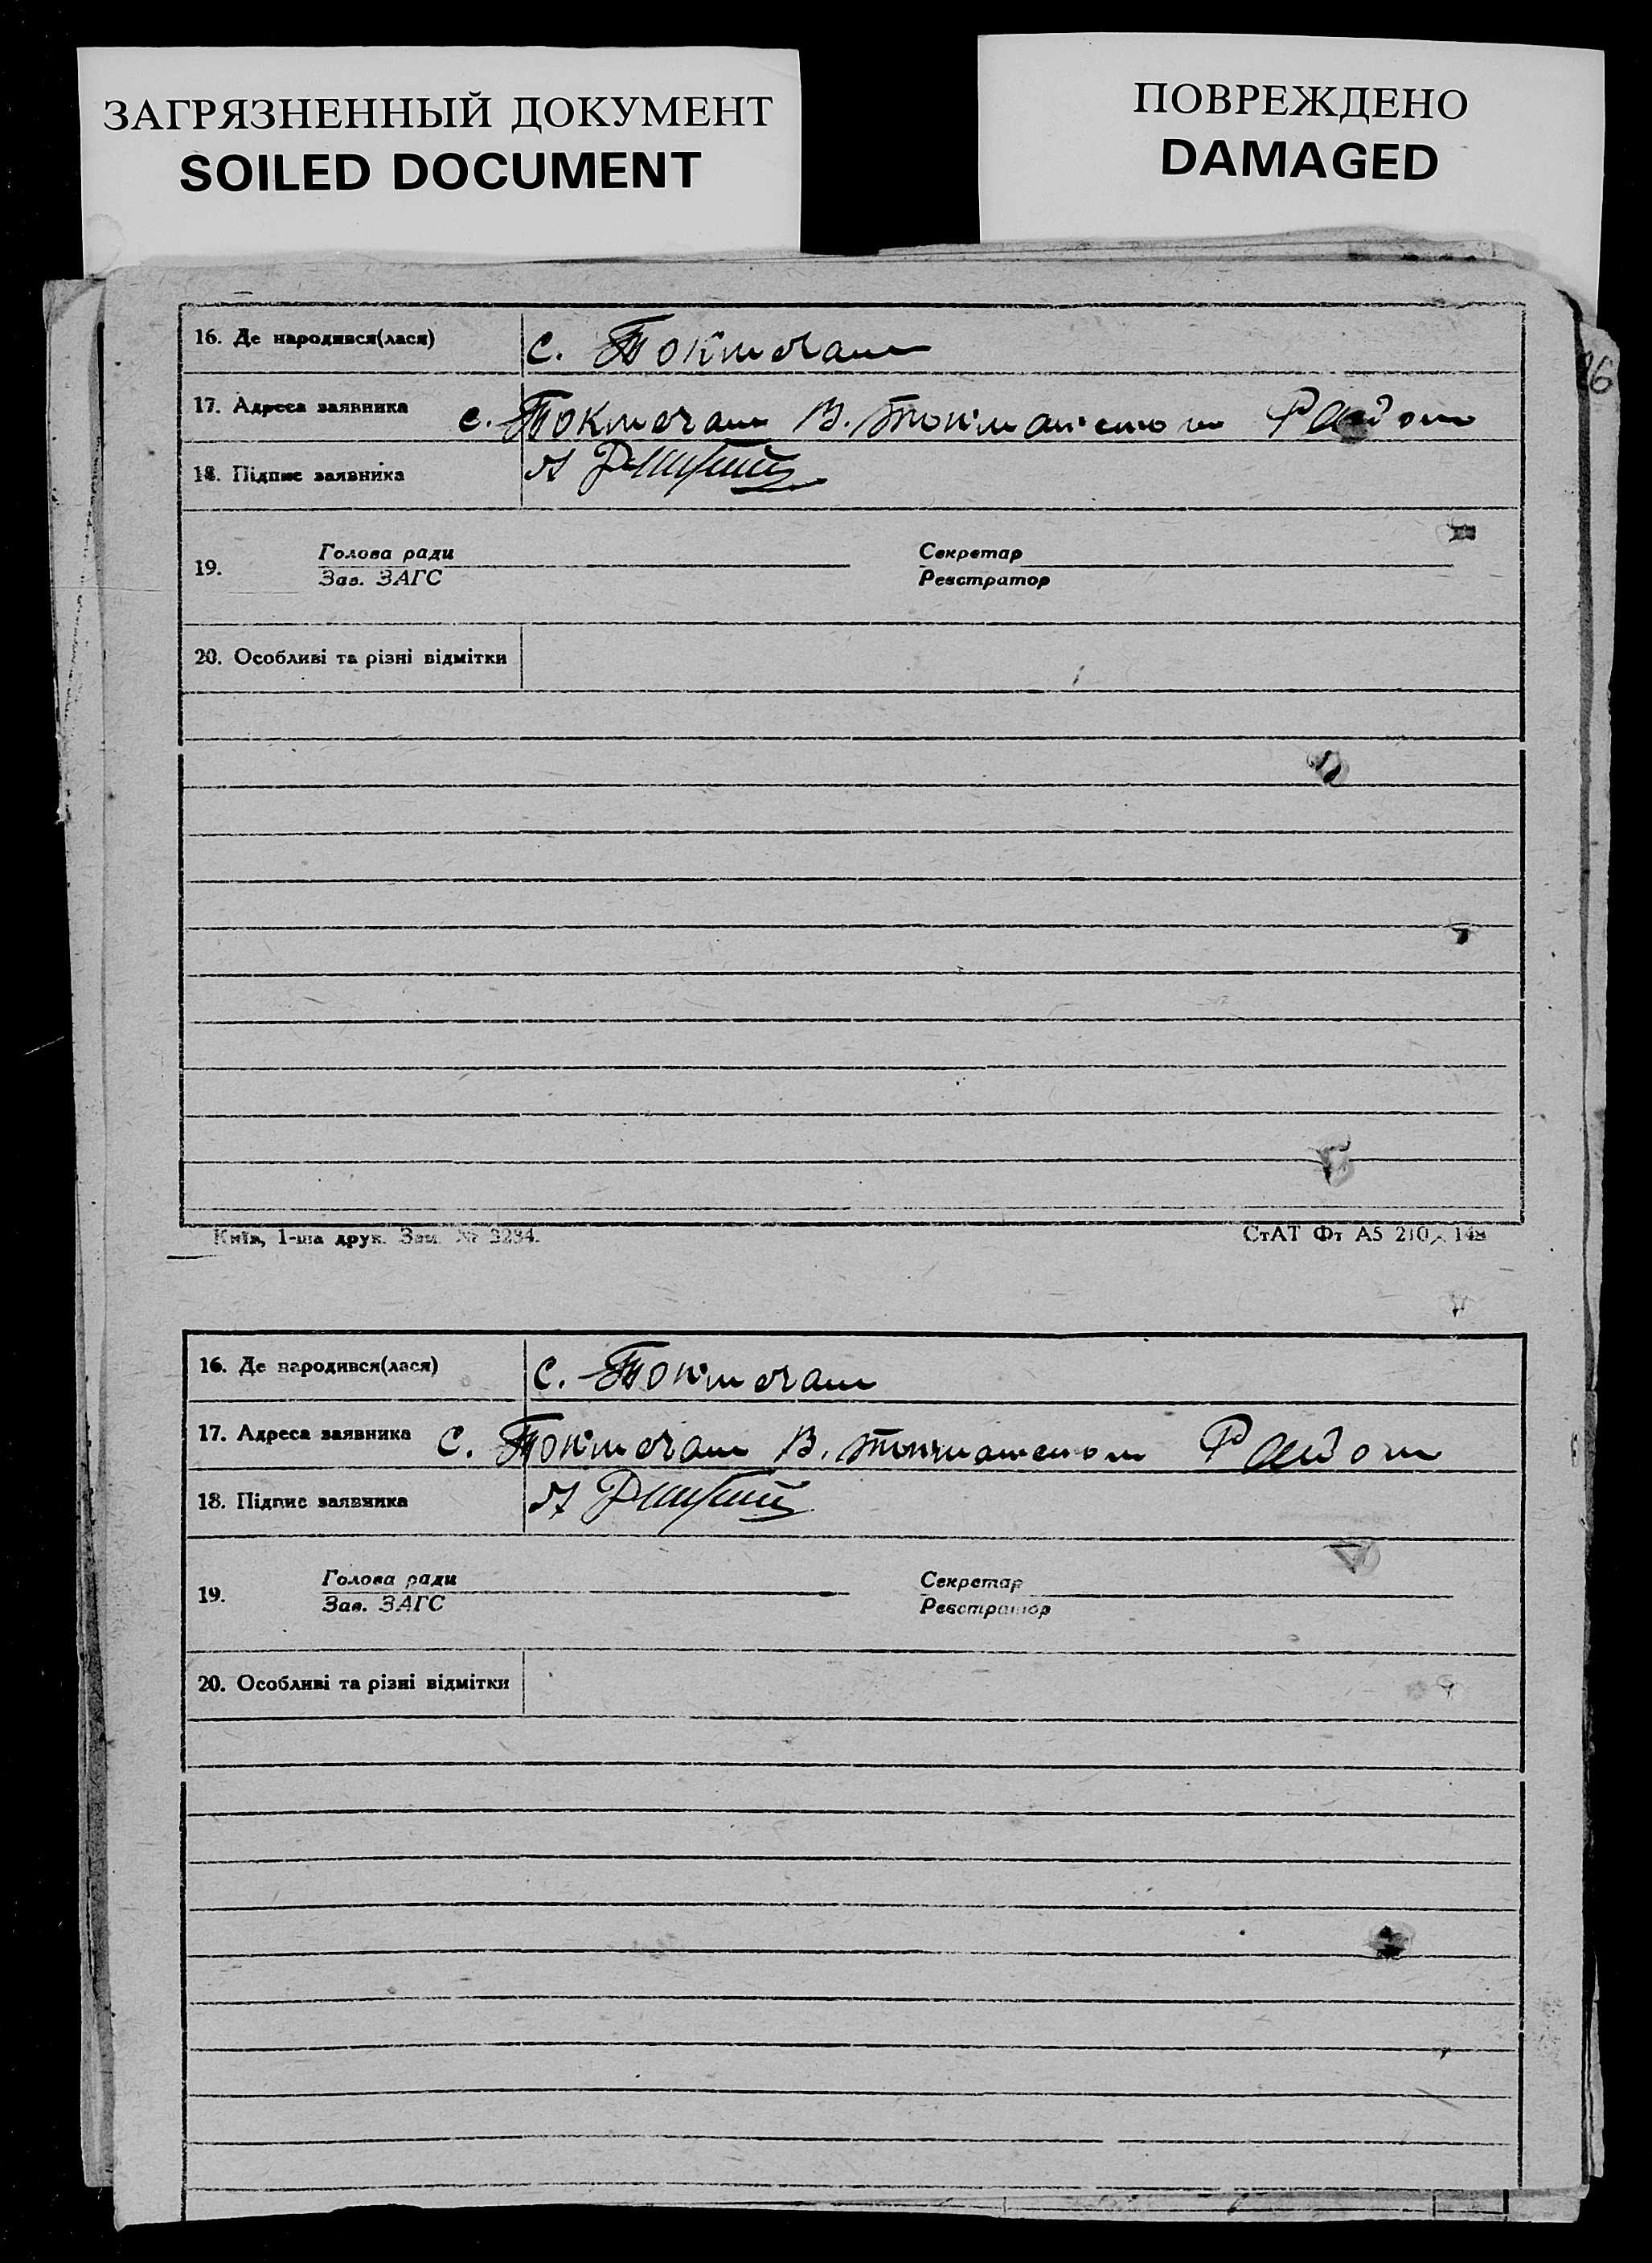 ЗАГРЯЗНЕННЫЙ ДОКУМЕНТ
SOILED DOCUMENT
ПОВРЕЖДЕНО
DAMAGED
16. Де народився(лася) с.
17. Адреса заявника с. В. Район
18. Підпис заявника
19. Голова ради Секретар
Зав. ЗАГС Реєстратор
20. Особливі та різні відмітки
Київ, 1-ша друк. Зам. № 3284. СтАТ Фт А5 210×148
16. Де народився(лася) с.
17. Адреса заявника с. В. Район
18. Підпис заявника
19. Голова ради Секретар
Зав. ЗАГС Реєстратор
20. Особливі та різні відмітки